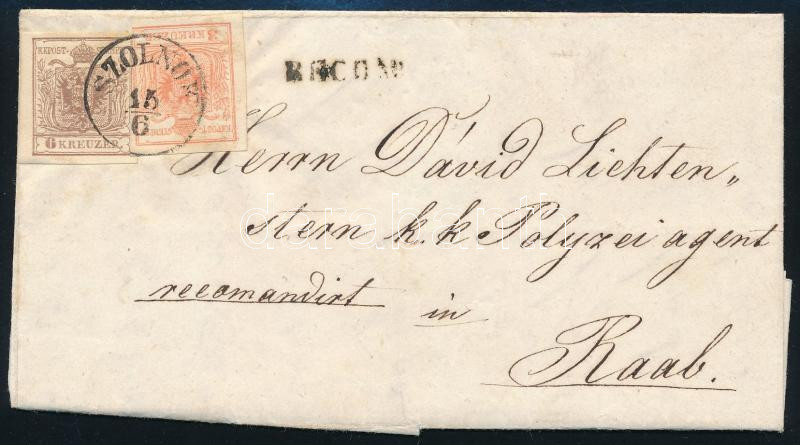 KKPOST-STEMPEL
6 KREUZER
3 KREUZER
KKPOST-STEMPEL
SZOLNOK
15
6
RECOM
Herrn Dávid Lichten„
stern k. k Polyzei agent
recomandirt in
Raab.
darabanth